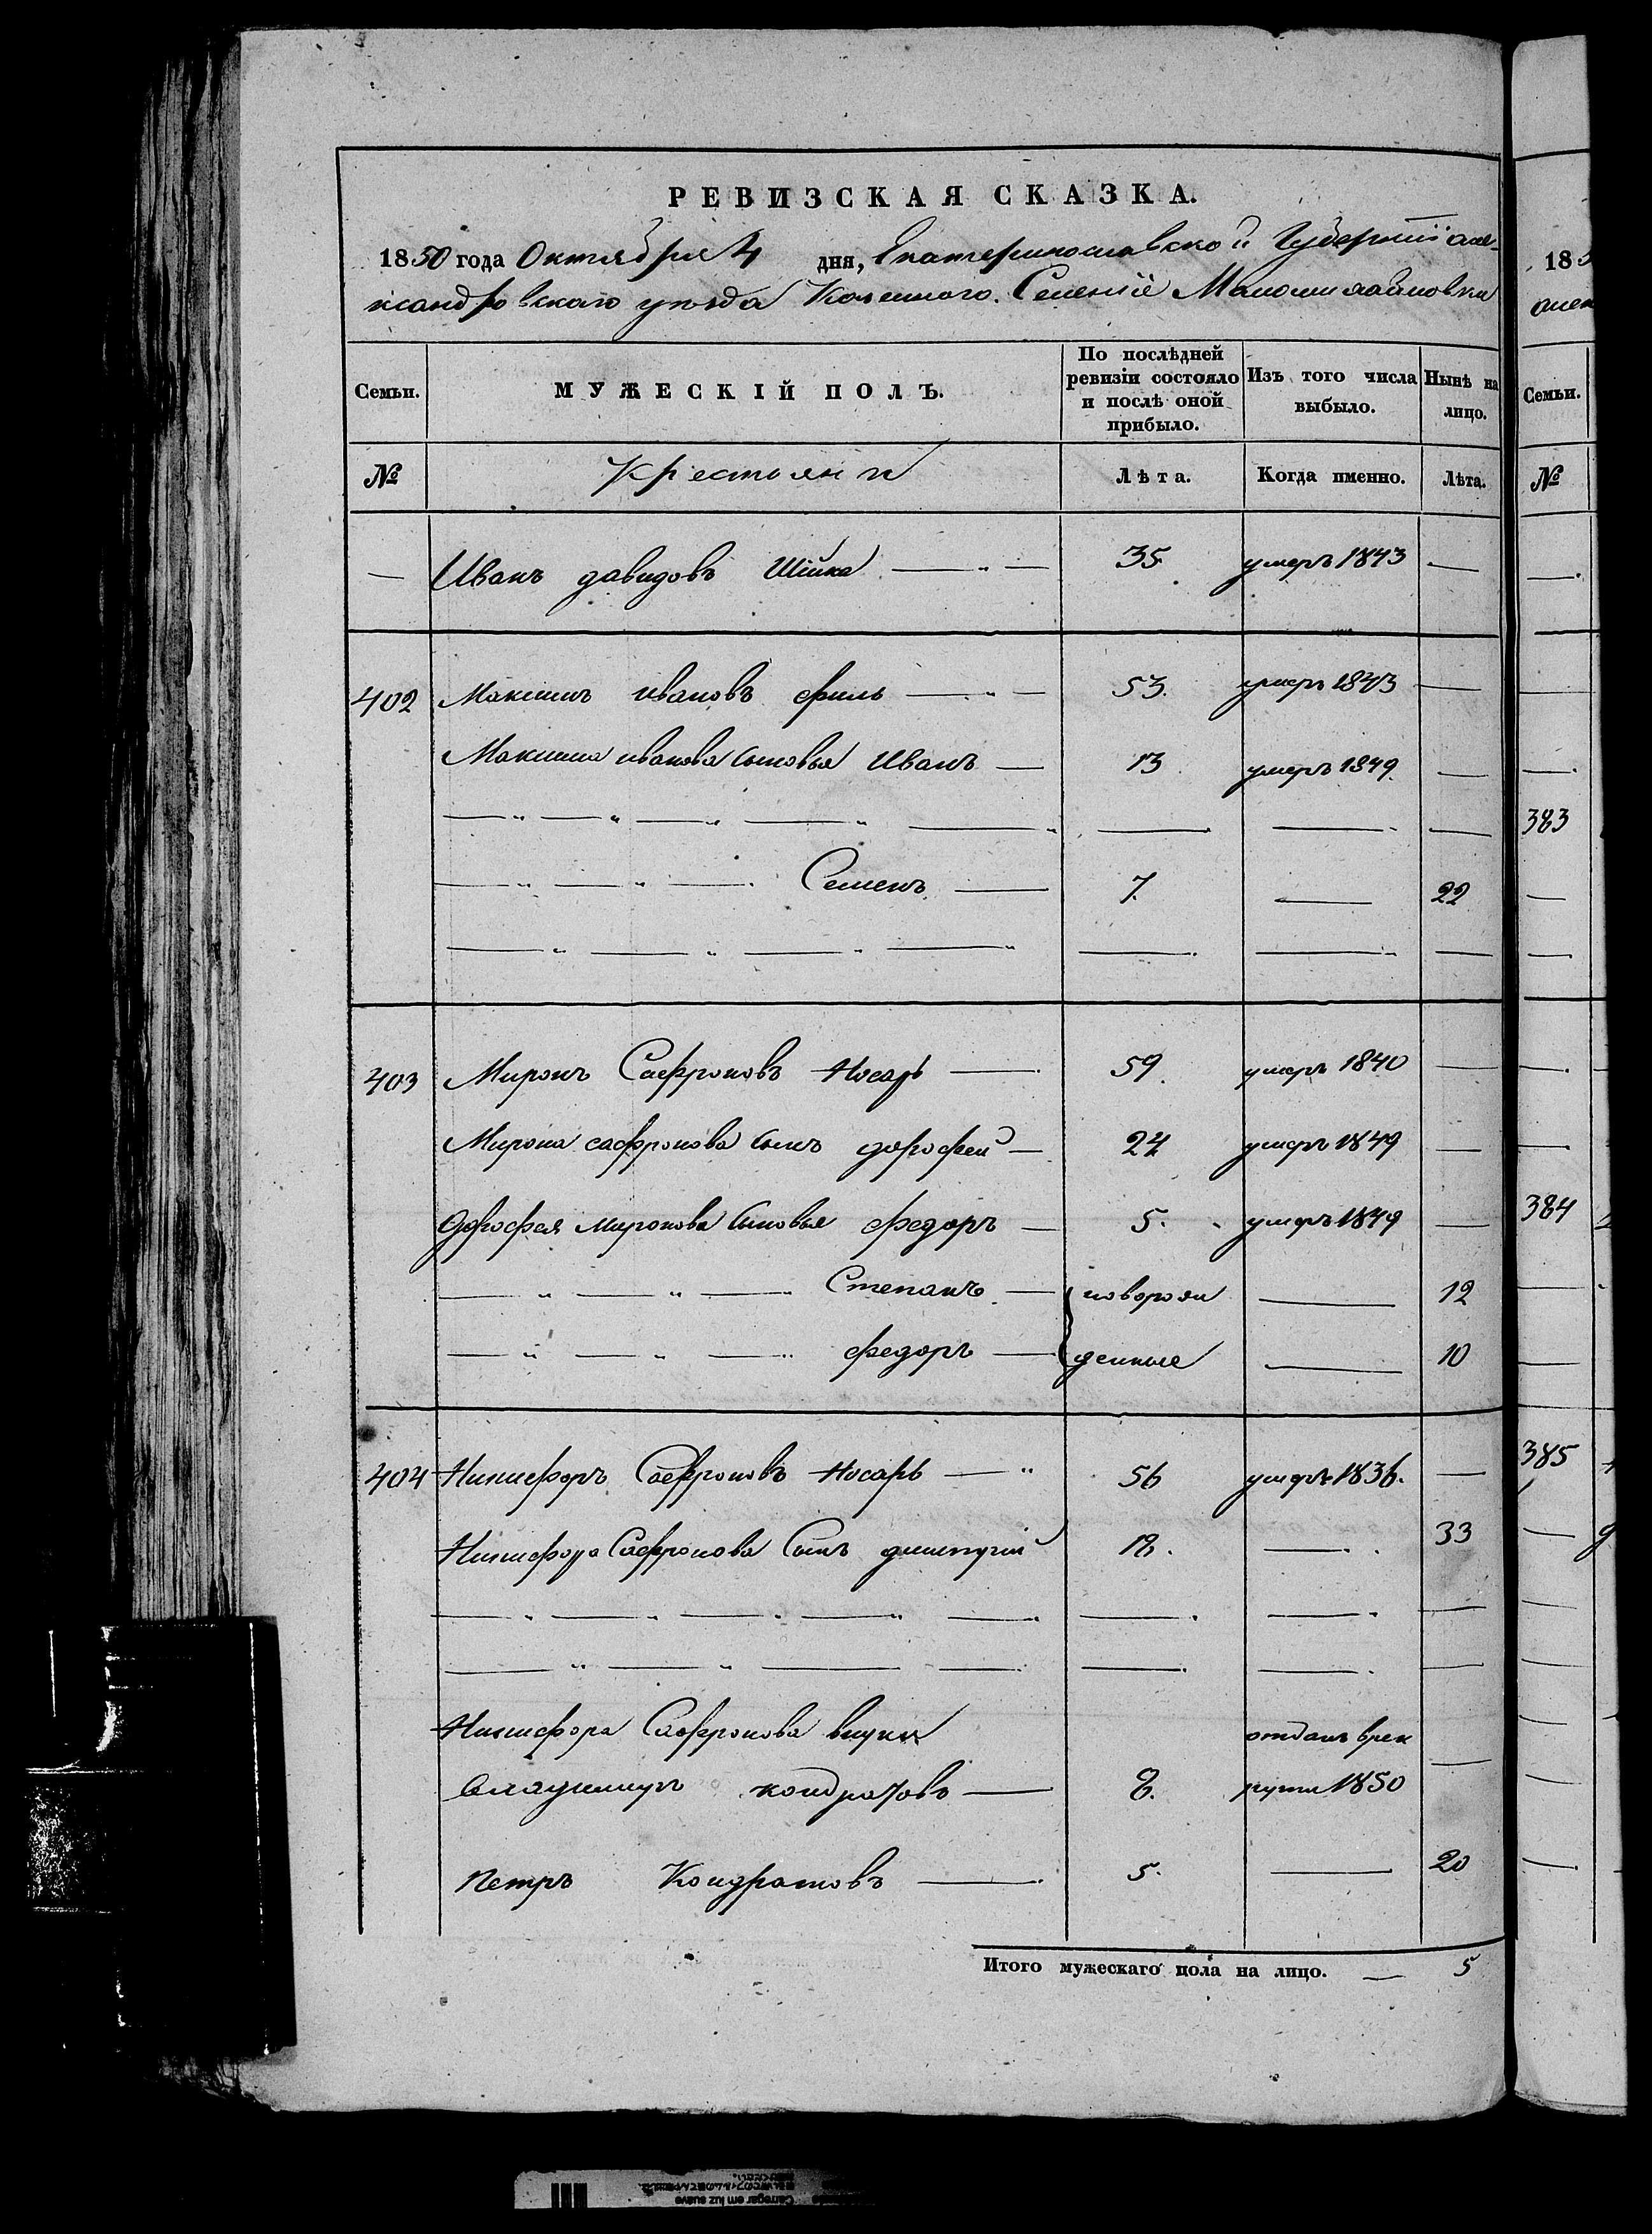 РЕВИЗСКАЯ СКАЗКА.
1850 года Октября 4 дня, Екатеринославской Губерніи алек-
сандровскаго уезда Казенного. Селеніе Маломихайловки
Семьи.
МУЖЕСКІЙ ПОЛЪ.
По послѣдней ревизіи состояло и послѣ оной прибыло.
Изъ того числа выбыло.
Нынѣ на лицо.
№
Крестьяни
Лѣта.
Когда именно.
Лѣта.
— Иванъ давидовъ Шійка — 35 умеръ 1843 —
402 Максимъ ивановъ филь — 53. умеръ 1843 —
Максима иванова сыновья Иванъ — 13 умеръ 1849. —
Семенъ — 7. — 22
403 Миронъ Сафроновъ Носарь — 59. умеръ 1840 —
Мирона сафронова сынъ дорофей — 24 умеръ 1849 —
дорофея миронова сыновья федоръ — 5. умеръ 1849 —
Степанъ — новорож — 12
федоръ — денные — 10
404 Никифоръ Сафроновъ Носарь — 56 умеръ 1836. —
Никифора Сафронова Сынъ димитрій 18. — 33
Никифора Сафронова внуки отданъ врек
владимиръ кондратовъ — 8. руты 1850 —
Петръ Кондратовъ — 5. — 20
Итого мужескаго пола на лицо. — 5
18
алек
Семьи.
№
383
384
385